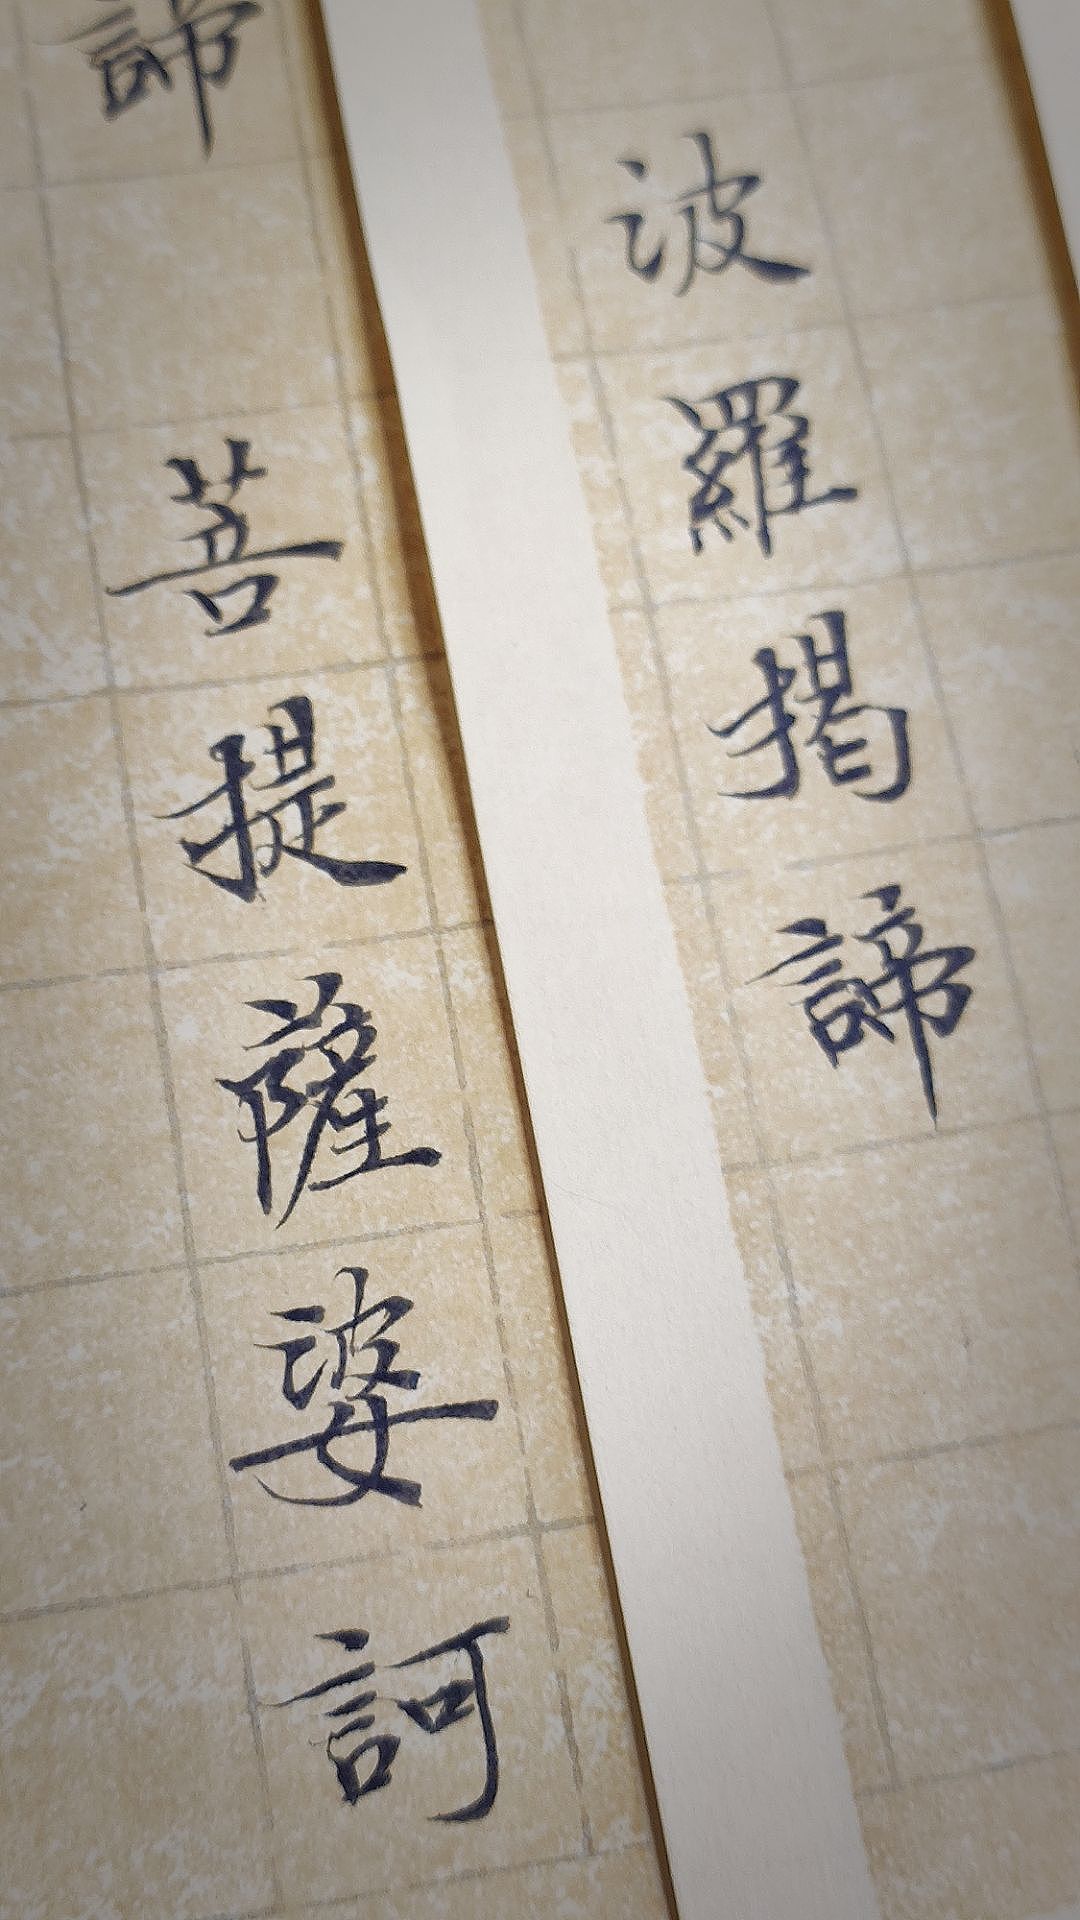 波羅揭諦
諦 菩提薩婆訶